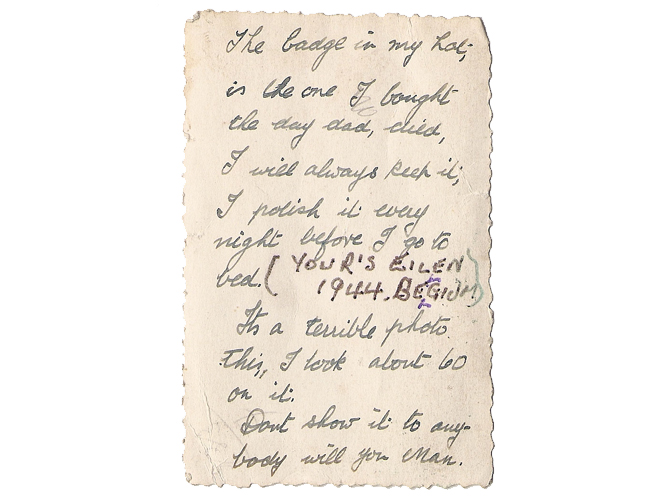 The badge in my hat,
is the one I bought
the day dad, died,
I will always keep it,
I polish it every
night before I go to
bed. ( YOUR'S EILEN )
1944. BEGIUM
Its a terrible photo.
This, I look about 60
on it.
Dont show it to any-
body will you Mam.